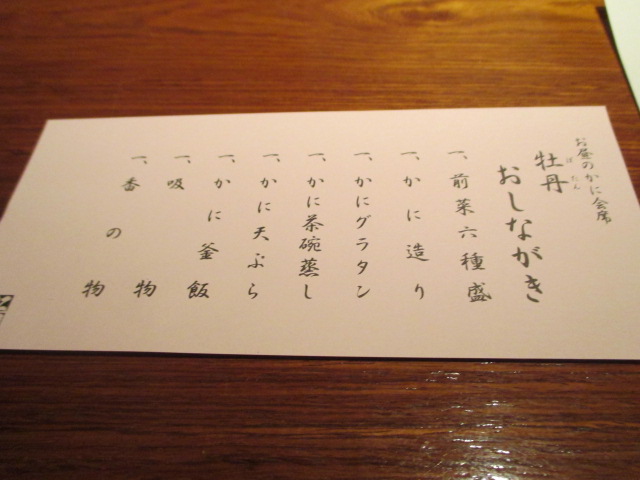 お昼のかに会席
牡丹
ぼたん
おしながき
一、前菜六種盛
一、かに造り
一、かにグラタン
一、かに茶碗蒸し
一、かに天ぷら
一、かに釜飯
一、吸物
一、香の物